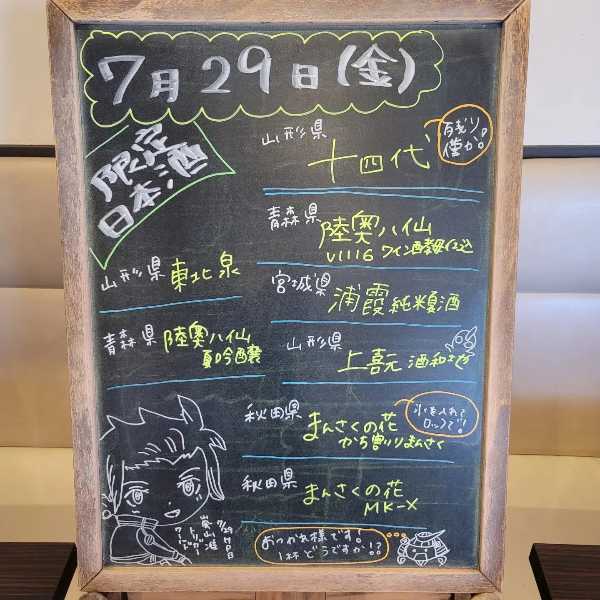 7月29日(金)
限定
日本酒
山形県
十四代
残り
僅か!
青森県
陸奥八仙
V1116 ワイン酵母仕込
山形県
東北泉
宮城県
浦霞 純米夏酒
青森県
陸奥八仙
夏吟醸
山形県
上喜元 酒和地
秋田県
まんさくの花
かち割りまんさく
氷を入れて
ロックで!!
秋田県
まんさくの花
MK-X
7/29
おつかれ様です!
1杯どうですか!?